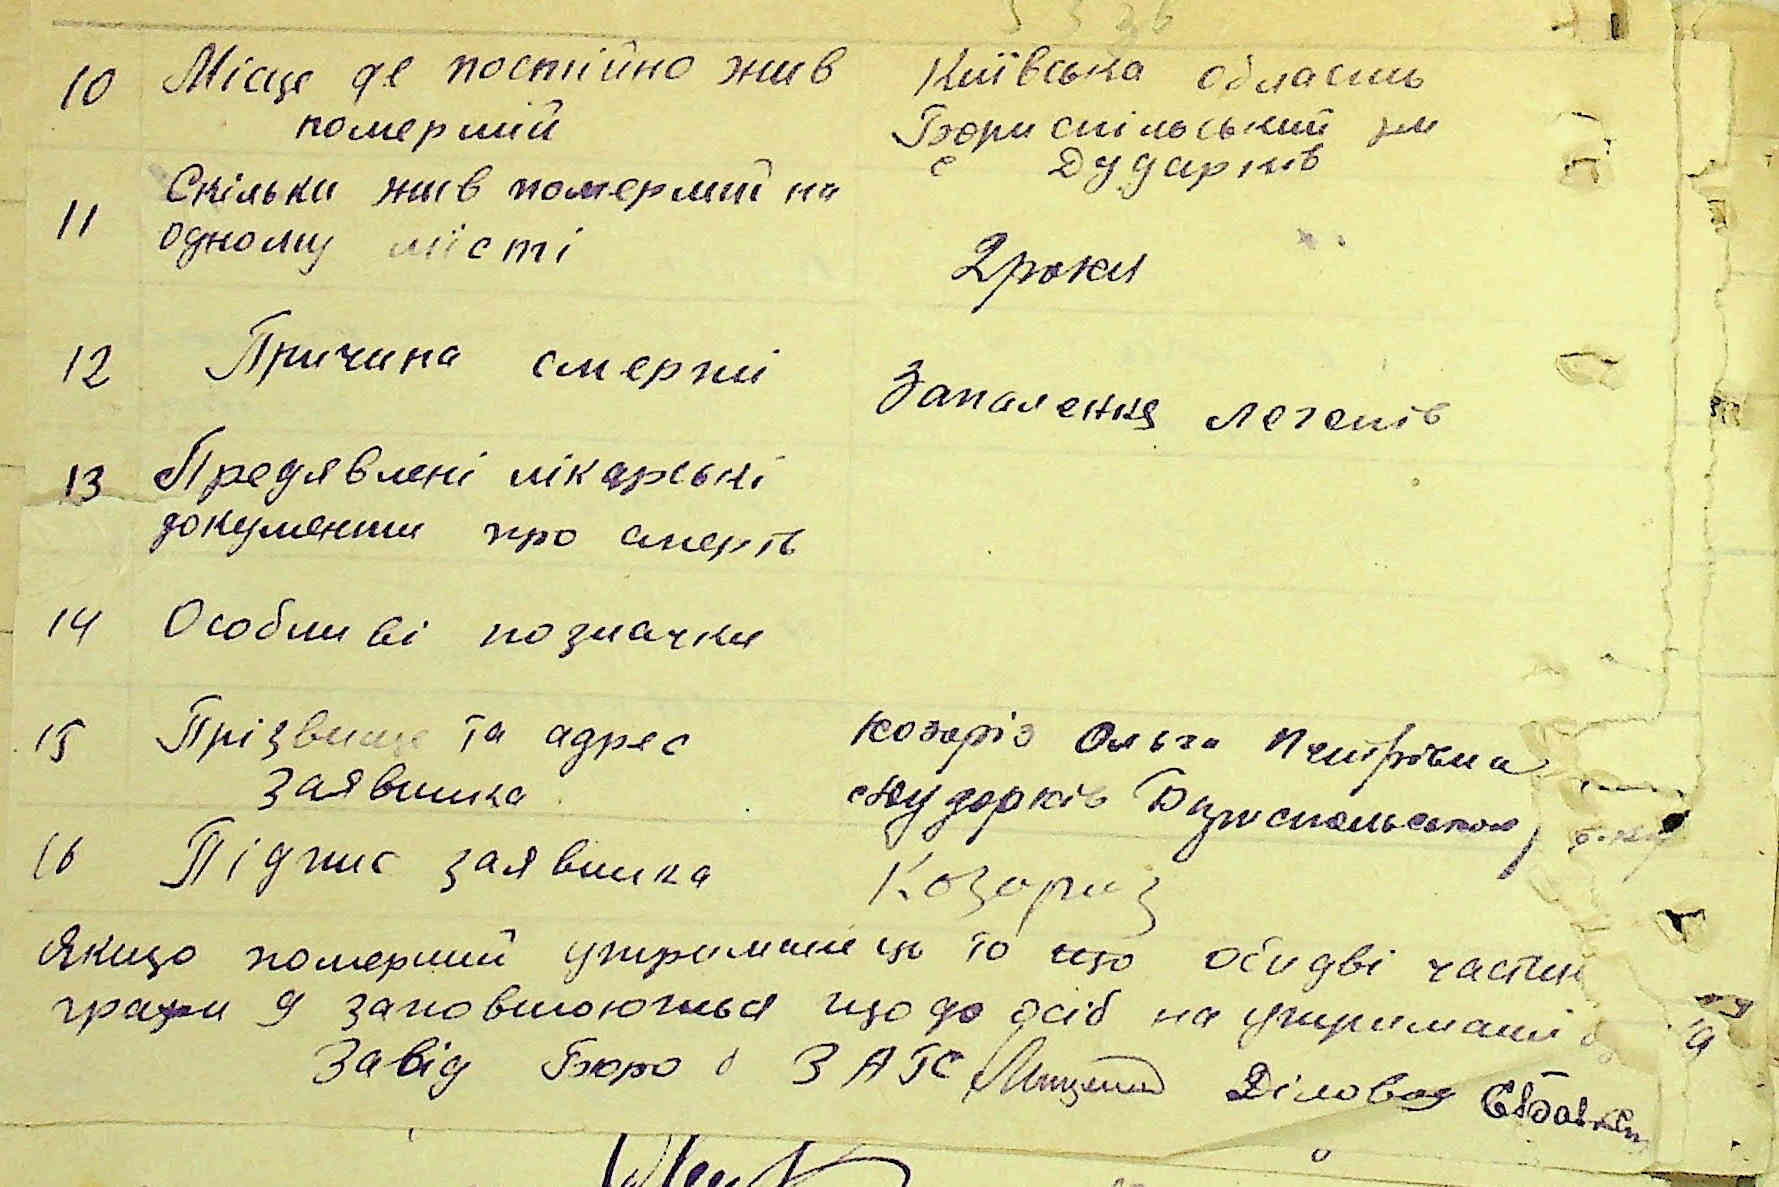 10 Місце де постійно жив Київська область
померший Бориспільський рн
с Дударків
11 Скільки жив померший на
одному місті 2 роки
12 Причина смерті Запалення легенів
13 Предявлені лікарські
документи про смерть
14 Особливі позначки
15 Прізвище та адрес Козаріз Ольга
заявника Дударків
16 Підпис заявника Козориз
Якщо померший утриманець то що обидві частин
графи 9 заповнюються щодо осіб на утримані
Завід Бюро ЗАГС Діловод